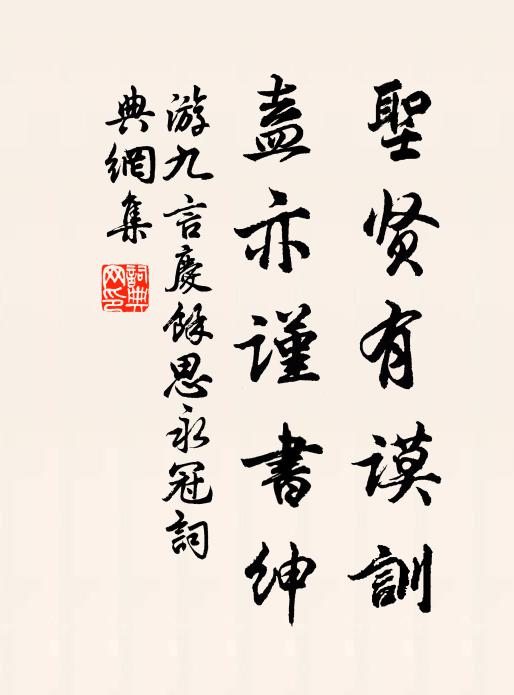 聖贤有謨訓
盍亦谨書紳
游九言慶餘思永冠詞
典網集
詞典网印